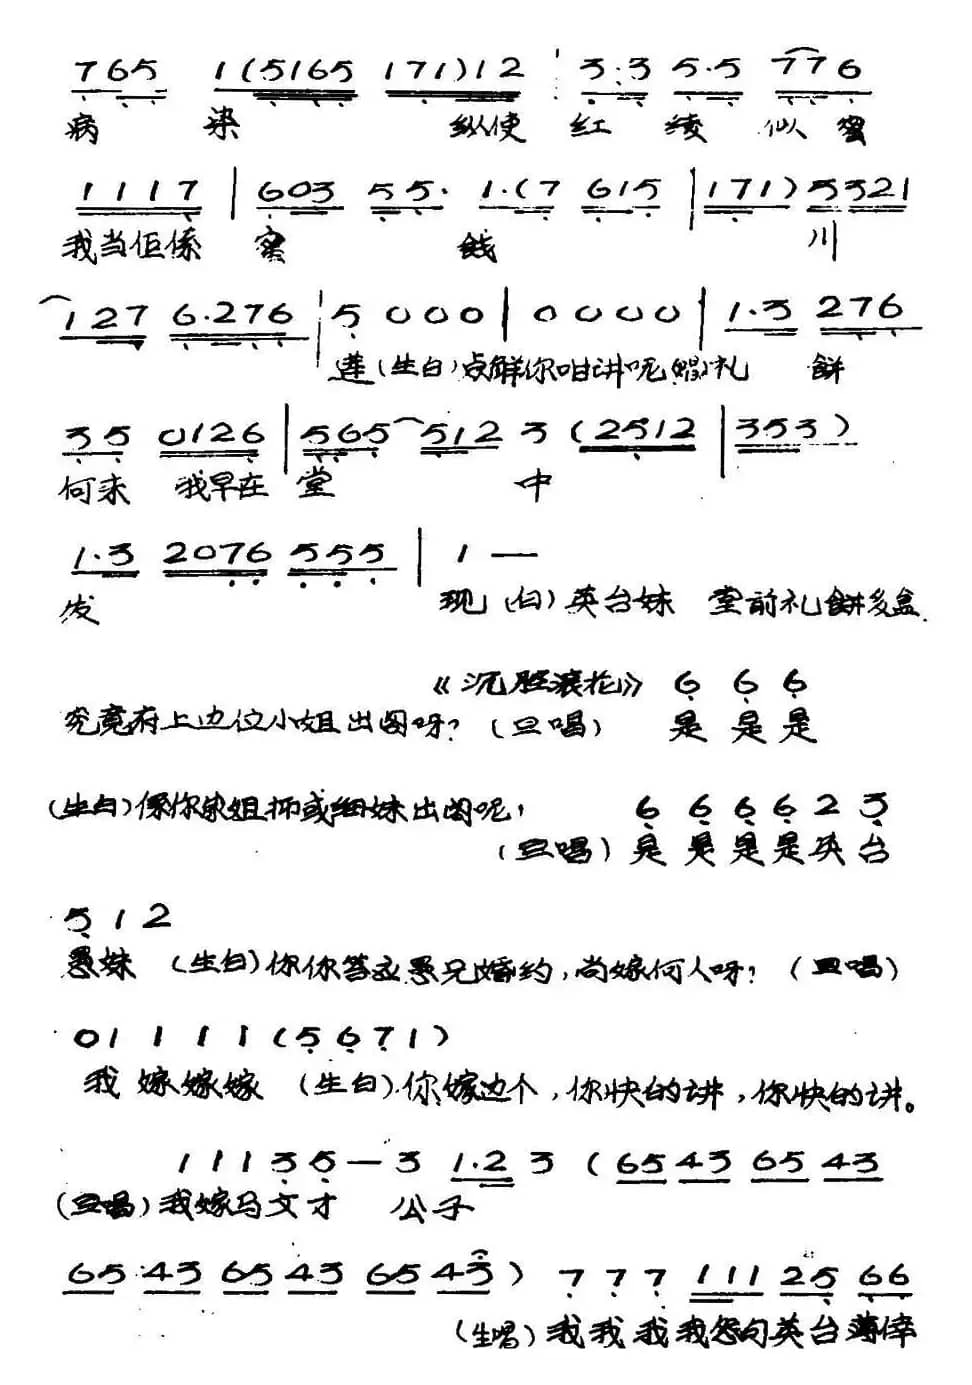 7 6 5 1 (5 1 6 5 1 7 1) 1 2 3·3 5·5 7 7 6
病 染 纵使 红 绫 似 蜜
1 1 1 7 | 6 0 3 5 5· 1·(7 6 1 5 | 1 7 1) 5 3 2 1
我当佢係 蜜 饯 川
1 2 7 6·2 7 6 5 0 0 0 | 0 0 0 0 | 1·3 2 7 6
莲 (生白) 点解你咁讲呢 (唱) 礼 餅
3 5 0 1 2 6 | 5 6 5 5 1 2 3 (2 5 1 2 | 3 5 3)
何来 我早在 堂 中
1·3 2 0 7 6 5 5 5 | 1 —
发 现 (白) 英台妹 堂前礼餅多盒.
《沉腔滚花》 6 6 6
究竟府上边位小姐出阁呀? (旦唱) 是 是 是
(生白) 係你家姐抑或细妹出阁呢, 6 6 6 6 2 3
(旦唱) 是 是 是 是 英 台
5 1 2
愚妹 (生白) 你你答应愚兄婚约,尚嫁何人呀? (旦唱)
0 1 1 1 1 (5 6 7 1)
我 嫁嫁嫁 (生白) 你嫁边个,你快的讲,你快的讲。
1 1 1 3 5 — 3 1·2 3 (6 5 4 3 6 5 4 3
(旦唱) 我嫁马文才 公子
6 5 4 3 6 5 4 3 6 5 4 3) 7 7 7 1 1 1 2 5 6 6
(生唱) 我我 我我怨句英台薄倖